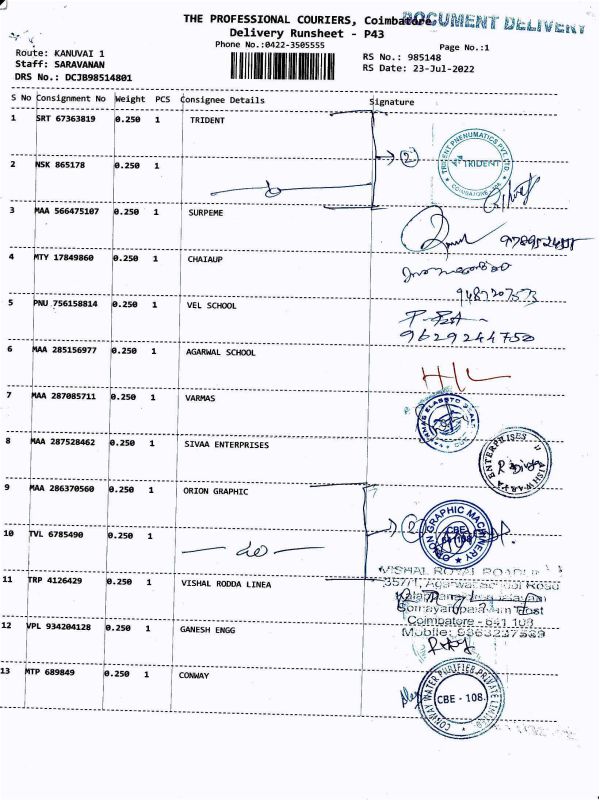 THE PROFESSIONAL COURIERS, Coimbatore
DOCUMENT DELIVERY
Delivery Runsheet - P43
Phone No.:0422-3505555
Page No.:1
Route: KANUVAI 1
Staff: SARAVANAN
DRS No.: DCJB98514801
RS No.: 985148
RS Date: 23-Jul-2022
S No Consignment No Weight PCS Consignee Details Signature
1 SRT 67363819 0.250 1 TRIDENT
TRIDENT PNEUMATICS PVT. LTD.
TRIDENT
COIMBATORE
2
2 NSK 865178 0.250 1
3 MAA 566475107 0.250 1 SURPEME
4 MTY 17849860 0.250 1 CHAIAUP
9487207573
5 PNU 756158814 0.250 1 VEL SCHOOL
9629244750
6 MAA 285156977 0.250 1 AGARWAL SCHOOL
H/L
7 MAA 287085711 0.250 1 VARMAS
8 MAA 287528462 0.250 1 SIVAA ENTERPRISES
ENTERPRISES
9 MAA 286370560 0.250 1 ORION GRAPHIC
ORION GRAPHIC MACHINERY
CBE
2
10 TVL 6785490 0.250 1
11 TRP 4126429 0.250 1 VISHAL RODDA LINEA
35/71, Agarwal School Road
Somayampalayam Post
Coimbatore - 641 108
12 VPL 934204128 0.250 1 GANESH ENGG
13 MTP 689849 0.250 1 CONWAY
CONWAY WATER PURIFIER PRIVATE LIMITED
CBE - 108.